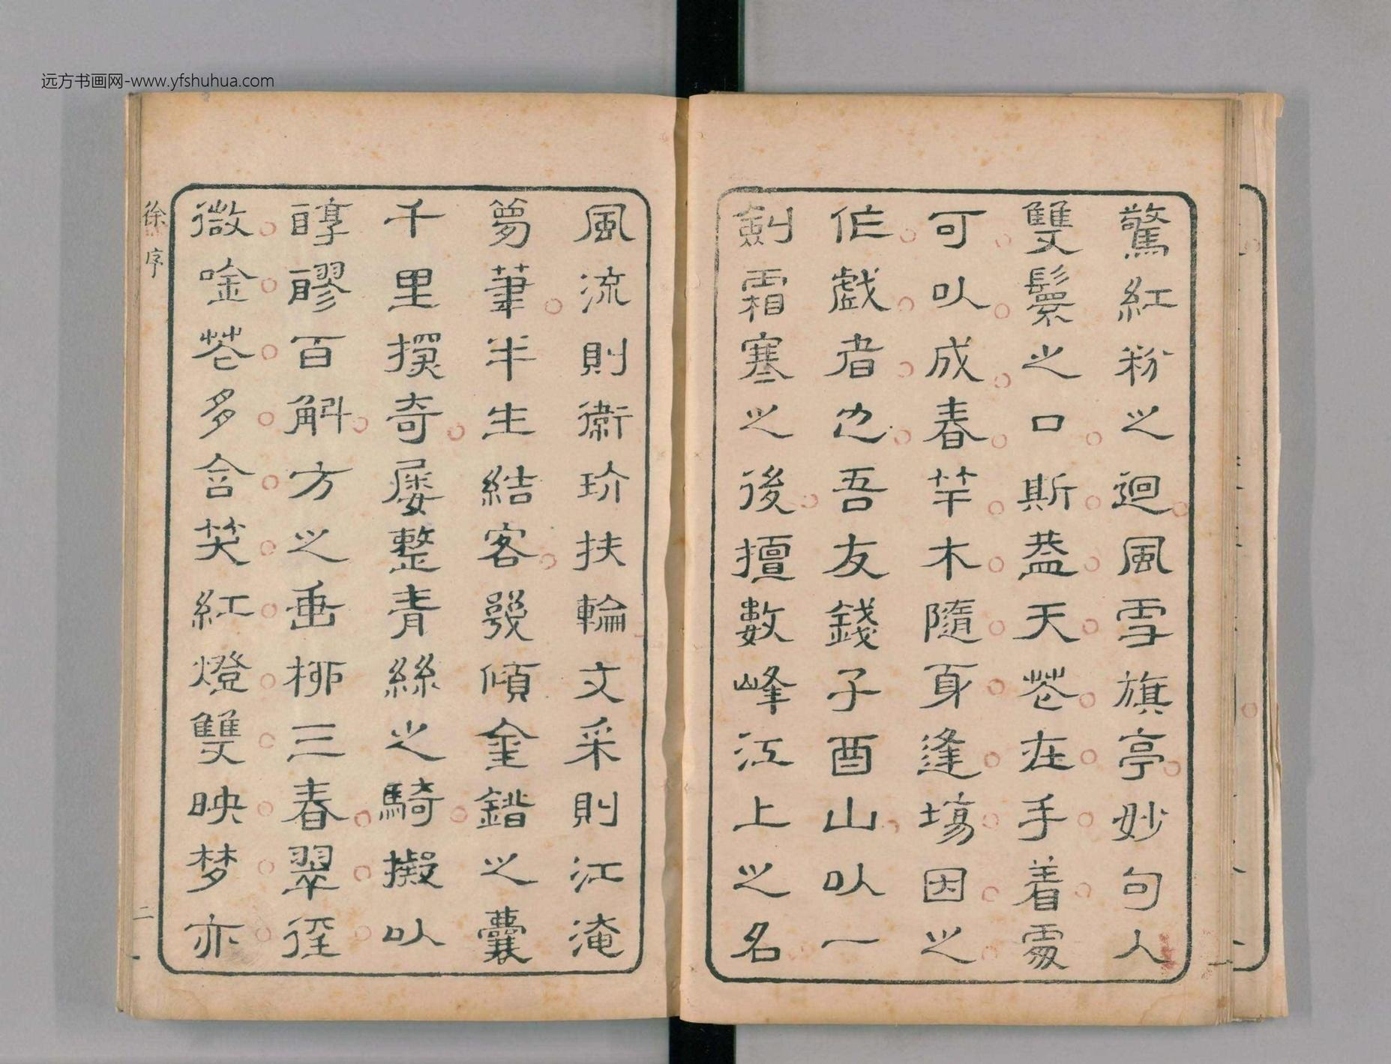 远方书画网-www.yfshuhua.com
驚紅粉之迴風雪旗亭妙句人
雙鬟之口斯蓋天花在手着處
可以成春竿木隨身逢場因之
作戲者也吾友錢子酉山以一
劍霜寒之後擅數峰江上之名
風流則衛玠扶輪文采則江淹
夢筆半生結客發傾金錯之囊
千里探奇屢整青絲之騎擬以
醇醪百斛方之垂柳三春翠徑
微唫花多含笑紅燈雙映夢亦
徐序
二